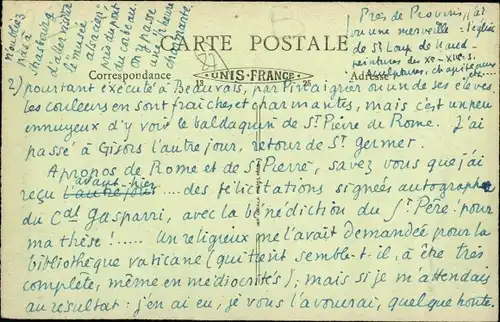 n'oubliez
pas à
Strasbourg
d'aller visiter
le "musée
alsacien",
près du pont
du corbeau.
on y passe
une heure
charmante
Près de Provins, j'ai
vu une merveille : l'église
de St Loup de Naud –
peintures des XIe - XIIe s.
sculptures, chapiteaux
etc
CARTE POSTALE
87
Correspondance
UNIS-FRANCE
Adresse
2) pourtant exécuté à Beauvais, par                     ou un de ses élèves.
Les couleurs en sont fraîches et charmantes, mais c'est un peu
ennuyeux d'y voir le baldaquin de St Pierre de Rome. J'ai
passé à Gisors l'autre jour, retour de St Germer.
A propos de Rome et de St Pierre, savez vous que j'ai
avant-hier
reçu l'autre jour .... des félicitations signées autographe
du Cdal Gasparri, avec la bénédiction du St Père pour
ma thèse !..... Un religieux me l'avait demandée pour la
bibliothèque vaticane (qui tient semble-t-il, à être très
complète, même en médiocrités) ; mais si je m'attendais
au résultat : j'en ai eu, je vous l'avouerai, quelque honte.